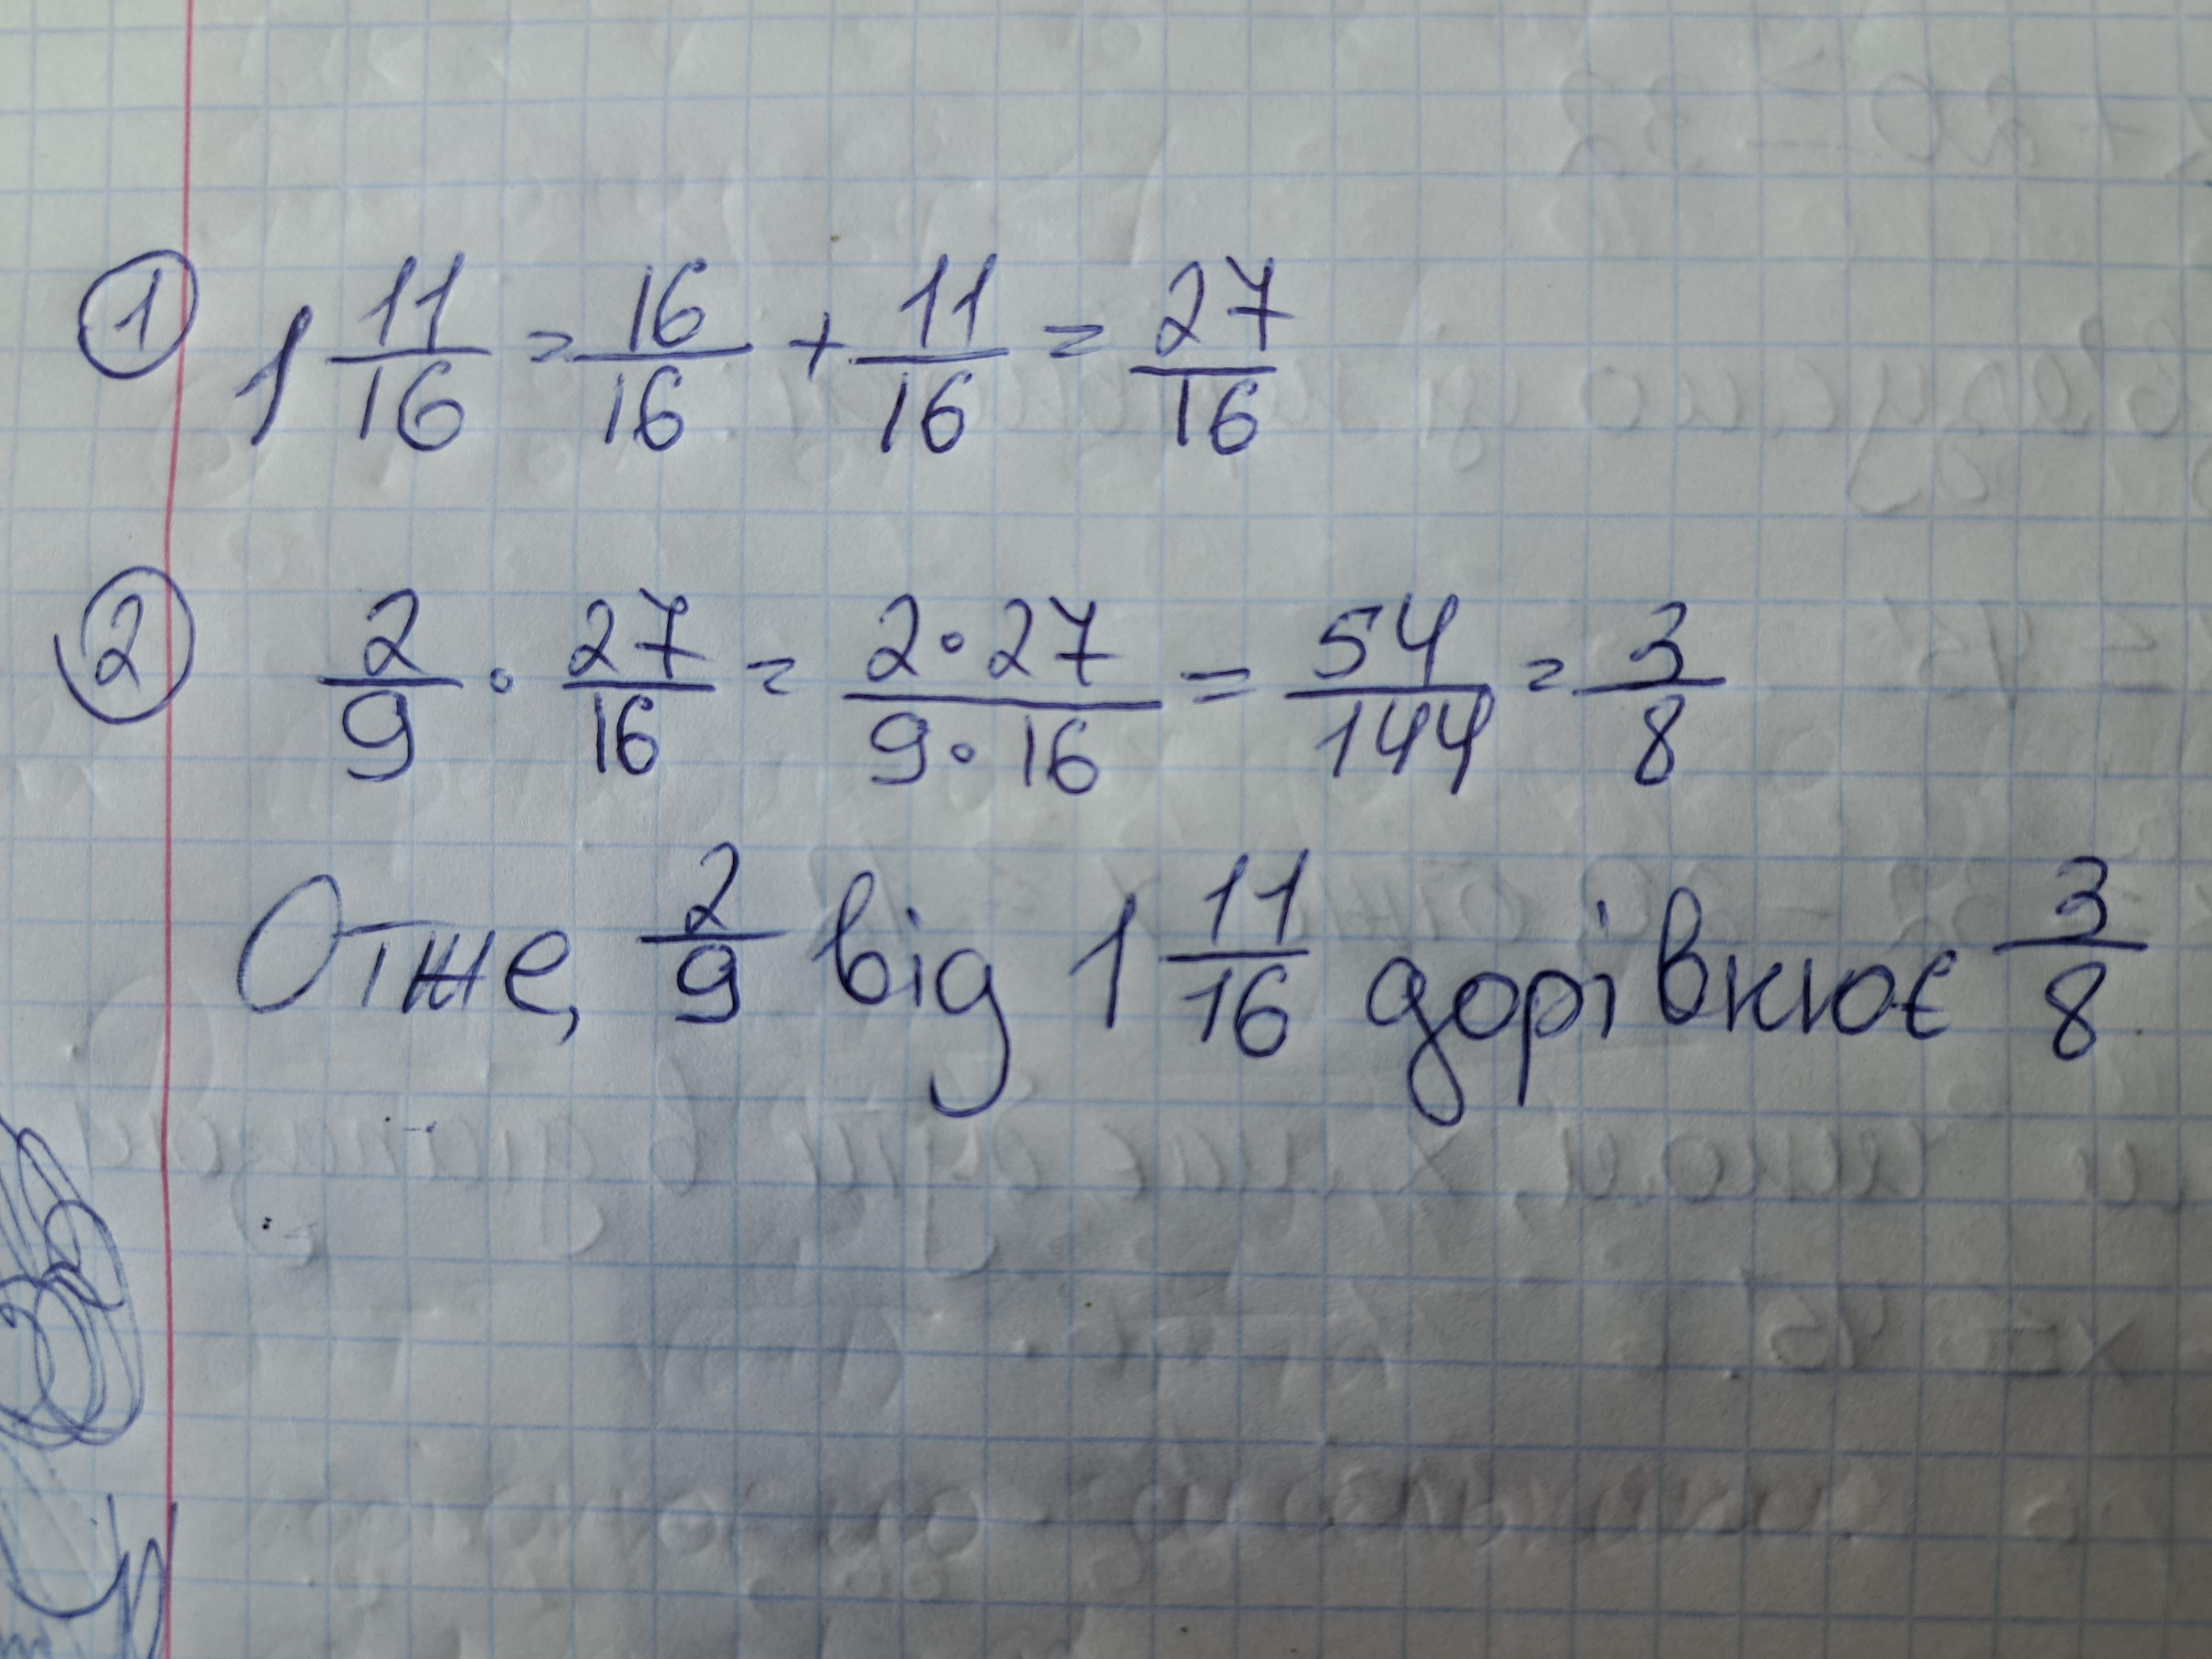 ① 1 11/16 = 16/16 + 11/16 = 27/16
② 2/9 · 27/16 = 2·27/9·16 = 54/144 = 3/8
Отже, 2/9 від 1 11/16 дорівнює 3/8